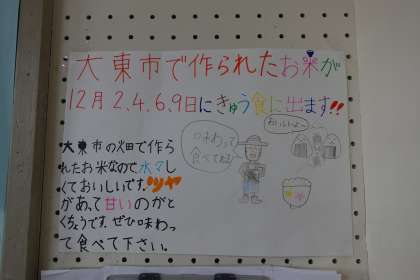 大東市で作られたお米が
12月2,4,6,9日にきゅう食に出ます!!
大東市の畑で作ら
れたお米なので水マし
くておいしいです。ツヤ
があって甘いのがと
くちょうです。ぜひ味わっ
て食べて下さい。
味わって
食べてね!
おいしいよ〜